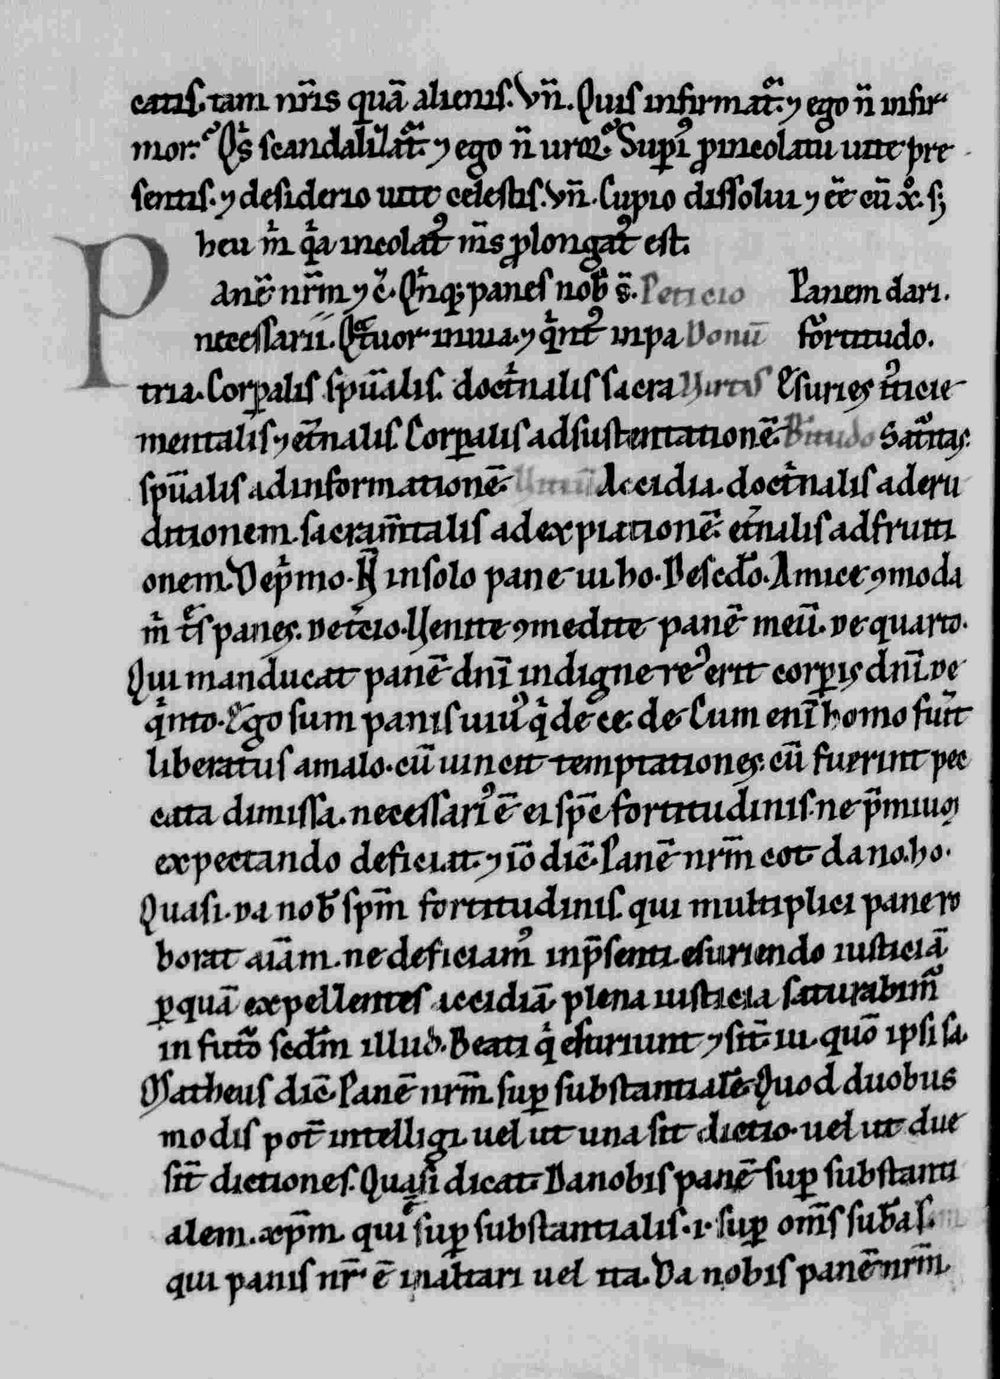 catis. tam nr̄is quā alienis. Vn̄. Quis infirmat᷑. ⁊ ego n̄ infir
mor. Qͥs scandalizat᷑ ⁊ ego n̄ uror. Sup̄ꝰ ꝓ incolatu uite pre
sentis. ⁊ desiderio uite celestis. Vn̄. Cupio dissolui ⁊ eē cū x̄ꝰ. s;
heu m̄ qͥa incolatꝰ mꝰs ꝓlongatꝰ est.
Panē nr̄m ⁊ c̄. Qͥnq; panes nob̄ s̄. Peticio Panem dari.
necessarii. Qͣtuor in uia. ⁊ qͥntꝰ in pa Donū fortitudo.
tria. Corꝑalis spūalis. doctͥnalis sacra Virtus Esuries iusticie
mentalis ⁊ etͥnalis Corꝑalis ad sustentationē. B̄titudo Saturitas.
spūalis ad informationē. Uitiū Accidia. doctͥnalis ad eru
ditionem. sacram̄talis ad expiationē. etͥnalis ad fruiti
onem. De pͥmo. N̄ in solo pane ui. ho. De scd̄o. Amice ꝯmoda
m̄ tͤs panes. de tͨcio. Uenite ꝯmedite panē meū. de quarto.
Qui manducat panē dn̄i indigne reꝰ erit corꝑis dn̄i. de
qͥnto. Ego sum panis uiuꝰ qͥ de ce. de. Cum eni᷑ homo fuͥit
liberatus a malo. cū uincit temptationes. cū fuerint pec
cata dimissa. necessariꝰ ē ei sp̄c fortitudinis. ne p̄miuꝫ
expectando deficiat. ⁊ iō dic̄. Panē nr̄m cot. da no. ho.
Quasi. da nob̄ sp̄m fortitudinis qui multiplici pane ro
borat aīam. ne deficiamꝰ in p̄senti esuriendo iusticiā
ꝑ quā expellentes accidiā plena iusticia saturabimꝰ
in futo sed̄m illud. Beati qͥ esuriunt ⁊ sit̄ iu. quō ipsi sa.
Matheus dic̄. Panē nr̄m suꝑ substantialē. Quod duobus
modis pot̄ intelligi. uel ut una sit dictio. uel ut due
sit̄ dictiones. Quasi dicat. Da nobis panē suꝑ substanti
alem. xp̄m. qui ē suꝑ substantialis. .i. suꝑ om̄s suba s.
qui panis nr̄ ē in altari uel ita. Da nobis panē nr̄m